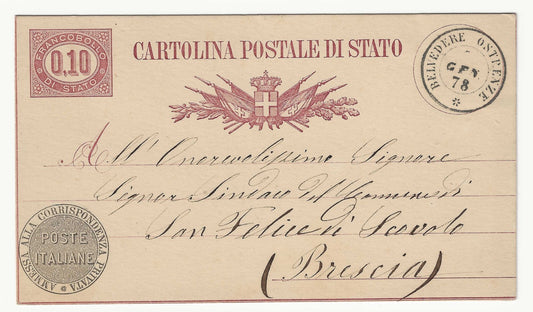 FRANCOBOLLO
0,10
DI STATO
CARTOLINA POSTALE DI STATO
BELVEDERE OSTRENZE
GEN
78
All' Onorevolissimo Signore
Signor Sindaco del Comune di
San Felice di Scovolo
(Brescia)
AMMESSA ALLA CORRISPONDENZA PRIVATA
POSTE
ITALIANE